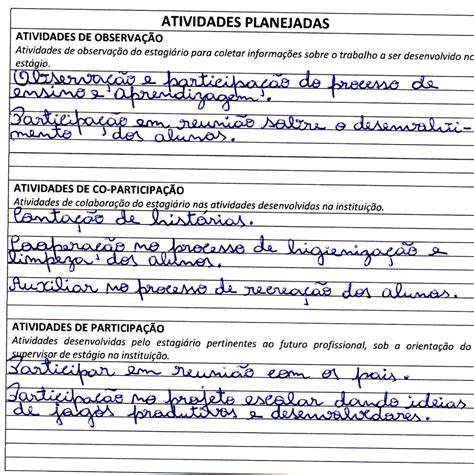 ATIVIDADES PLANEJADAS
ATIVIDADES DE OBSERVAÇÃO
Atividades de observação do estagiário para coletar informações sobre o trabalho a ser desenvolvido no
estágio.
Observação e participação do processo de
ensino e aprendizagem.
Participação em reunião sobre o desenvolvi-
mento dos alunos.
ATIVIDADES DE CO-PARTICIPAÇÃO
Atividades de colaboração do estagiário nas atividades desenvolvidas na instituição.
Contação de histórias.
Cooperação no processo de higienização e
limpeza dos alunos.
Auxiliar no processo de recreação dos alunos.
ATIVIDADES DE PARTICIPAÇÃO
Atividades desenvolvidas pelo estagiário pertinentes ao futuro profissional, sob a orientação do
supervisor de estágio na instituição.
Participar em reunião com os pais.
Participação no projeto escolar dando ideias
de jogos produtivos e desenvolvedores.